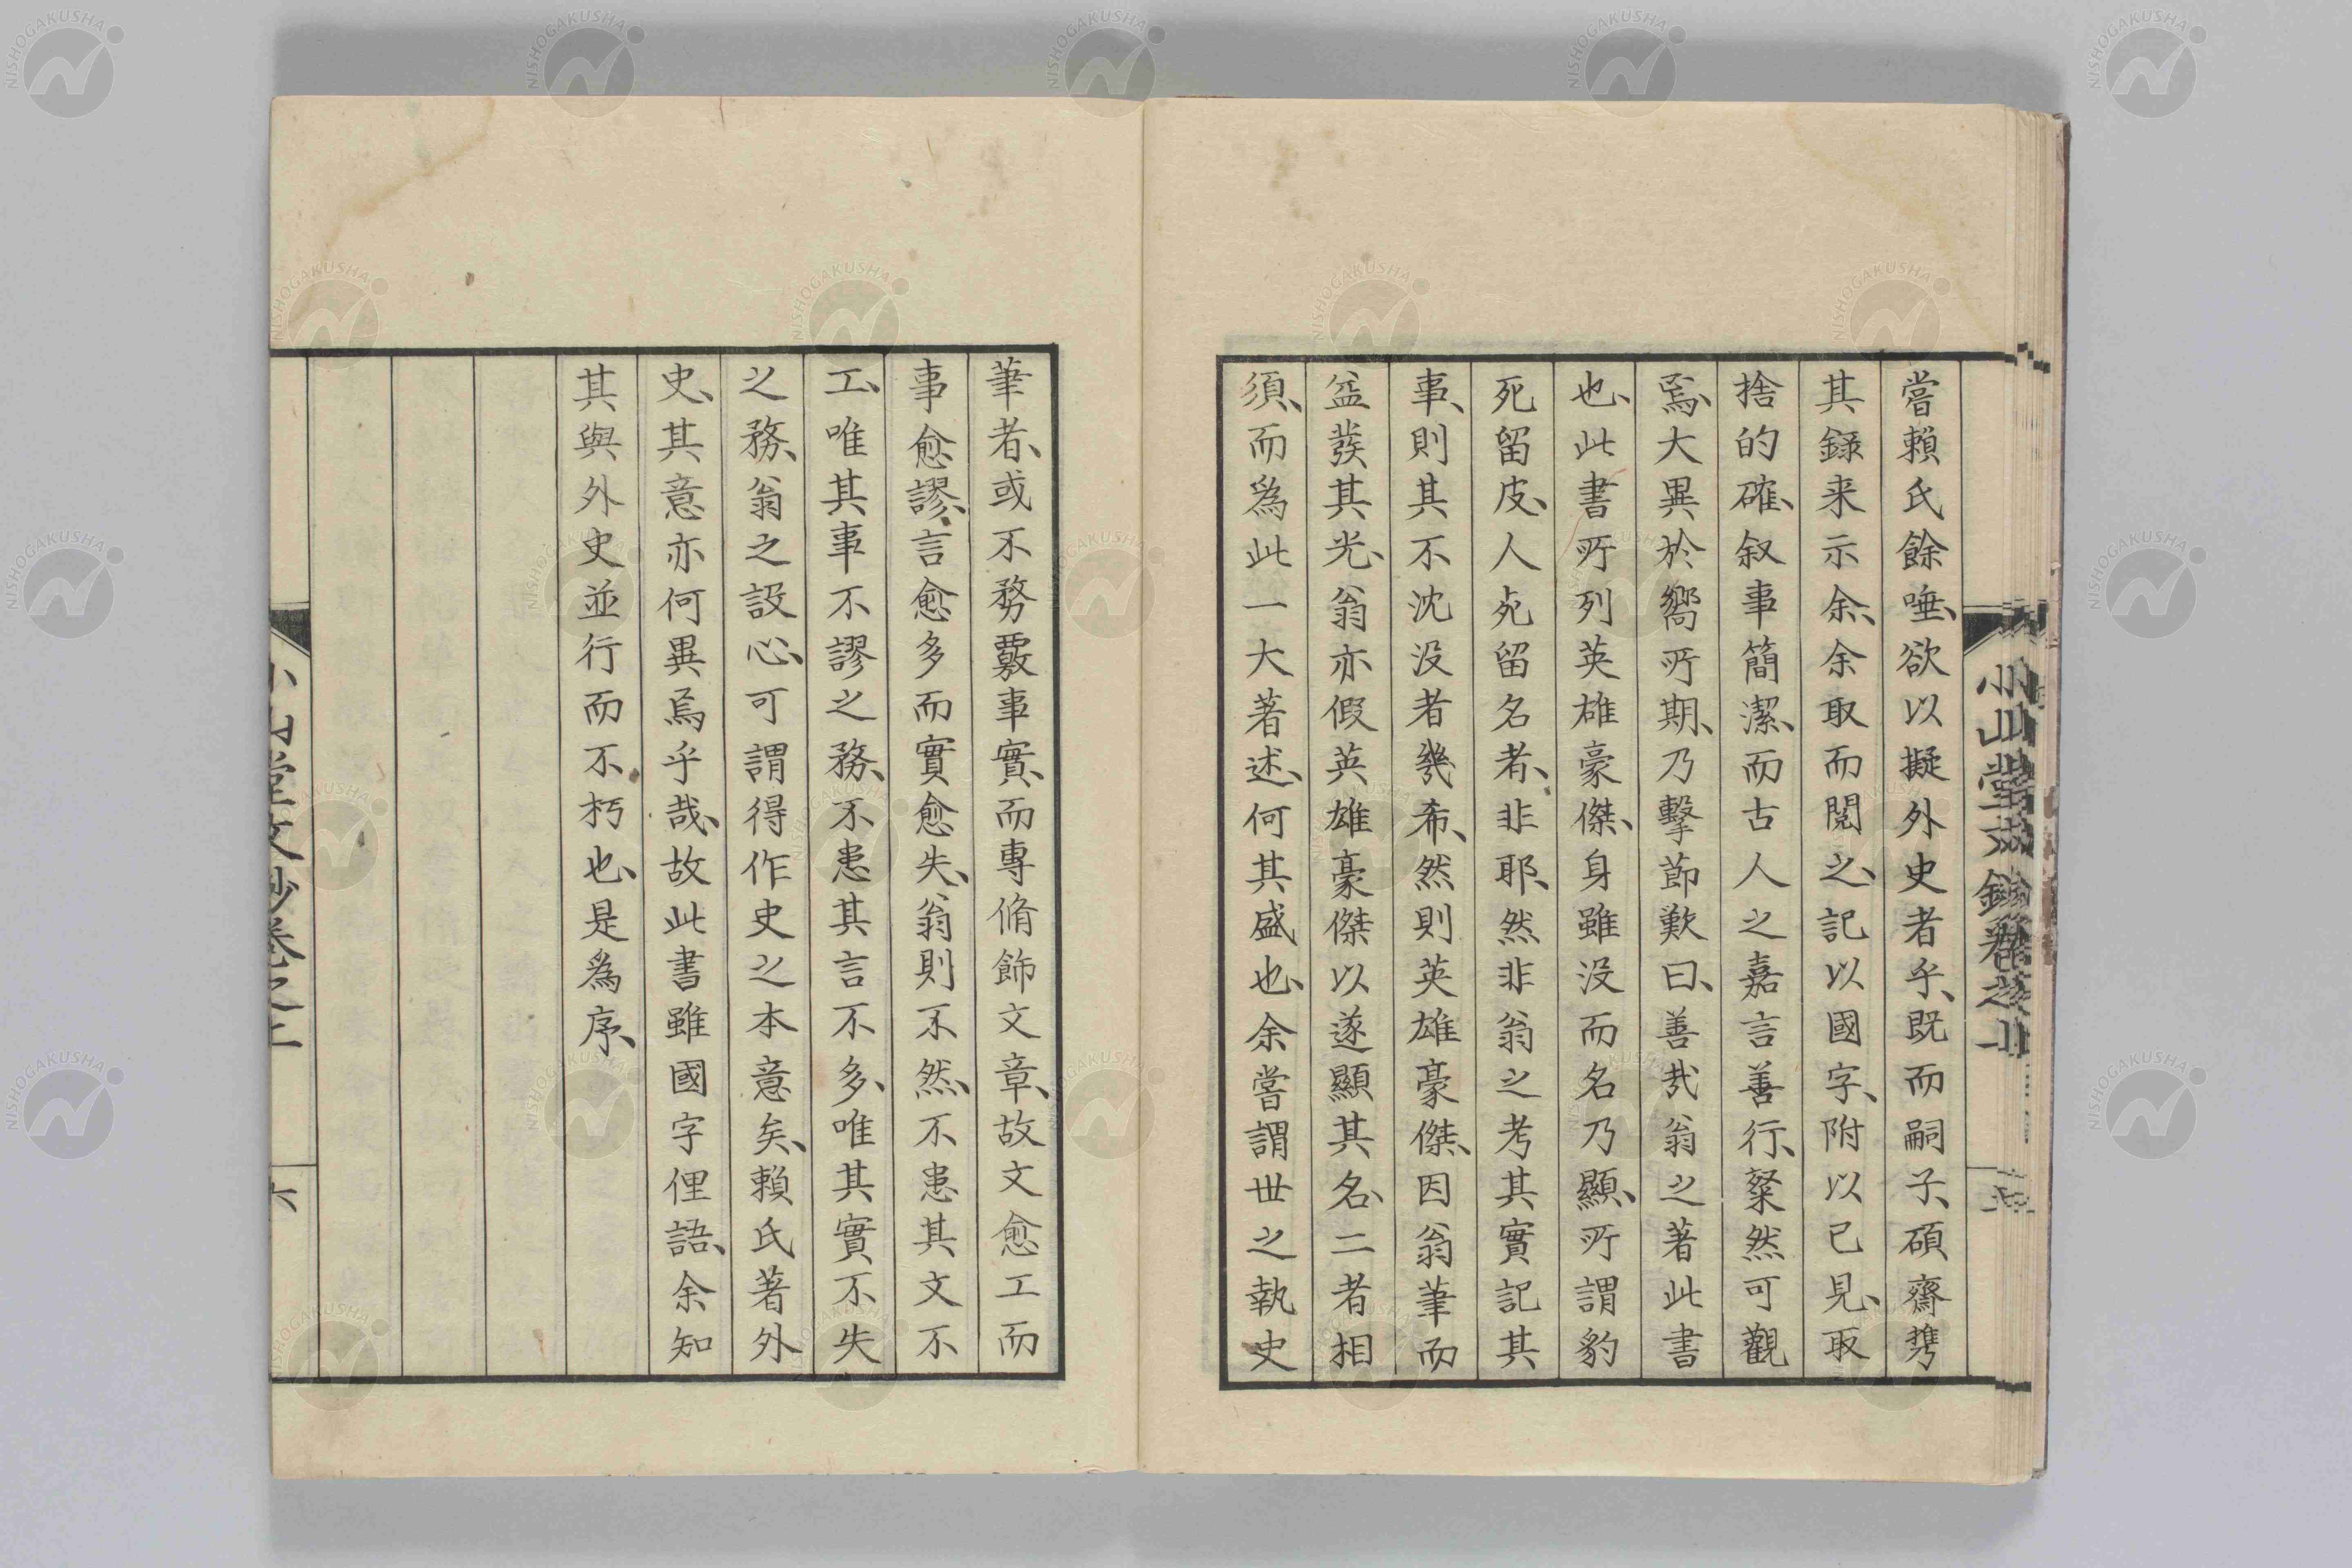 嘗賴氏餘唾、欲以擬外史者乎、既而嗣子、碩齋携
其録来示余、余取而閲之、記以國字、附以己見、取
捨的確、叙事簡潔、而古人之嘉言善行、粲然可觀
焉、大異於嚮所期、乃擊節歎曰、善哉翁之著此書
也、此書所列英雄豪傑、身雖没而名乃顯、所謂豹
死留皮、人死留名者、非耶、然非翁之考其實記其
事、則其不沈没者幾希、然則英雄豪傑、因翁筆而
益發其光、翁亦假英雄豪傑以遂顯其名、二者相
須、而為此一大著述、何其盛也、余嘗謂世之執史
筆者、或不務覈事實、而專脩飾文章、故文愈工而
事愈謬、言愈多而實愈失、翁則不然、不患其文不
工、唯其事不謬之務、不患其言不多、唯其實不失
之務、翁之設心、可謂得作史之本意矣、賴氏著外
史、其意亦何異焉乎哉、故此書雖國字俚語、余知
其與外史並行而不朽也、是為序、
小山堂文鈔卷之上
六
NISHOGAKUSHA